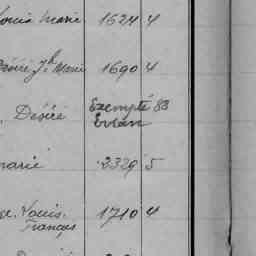 Louis Marie 1624 4
Désiré Jh Marie 1690 4
Désiré Exempté 88
Evran
Marie 2329 5
Louis 1710 4
François